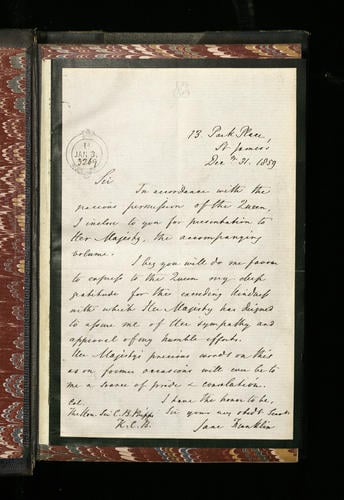 13 Park Place,
St James's
Decr 31. 1859
JAN 3.
3269
Sir
In accordance with the
gracious permission of the Queen,
I inclose to you for presentation to
Her Majesty, the accompanying
volume.
I beg you will do me favor
to express to the Queen my deep
gratitude for the exceeding kindness
with which Her Majesty has deigned
to assure me of Her sympathy and
approval of my humble efforts.
Her Majesty's precious words on this
as on former occasions will ever be to
me a source of pride & consolation.
I have the honor to be,
Sir your very obedt Servt
Jane Franklin
Col.
The Hon. Sir C. B. Phipps
K.C.B.